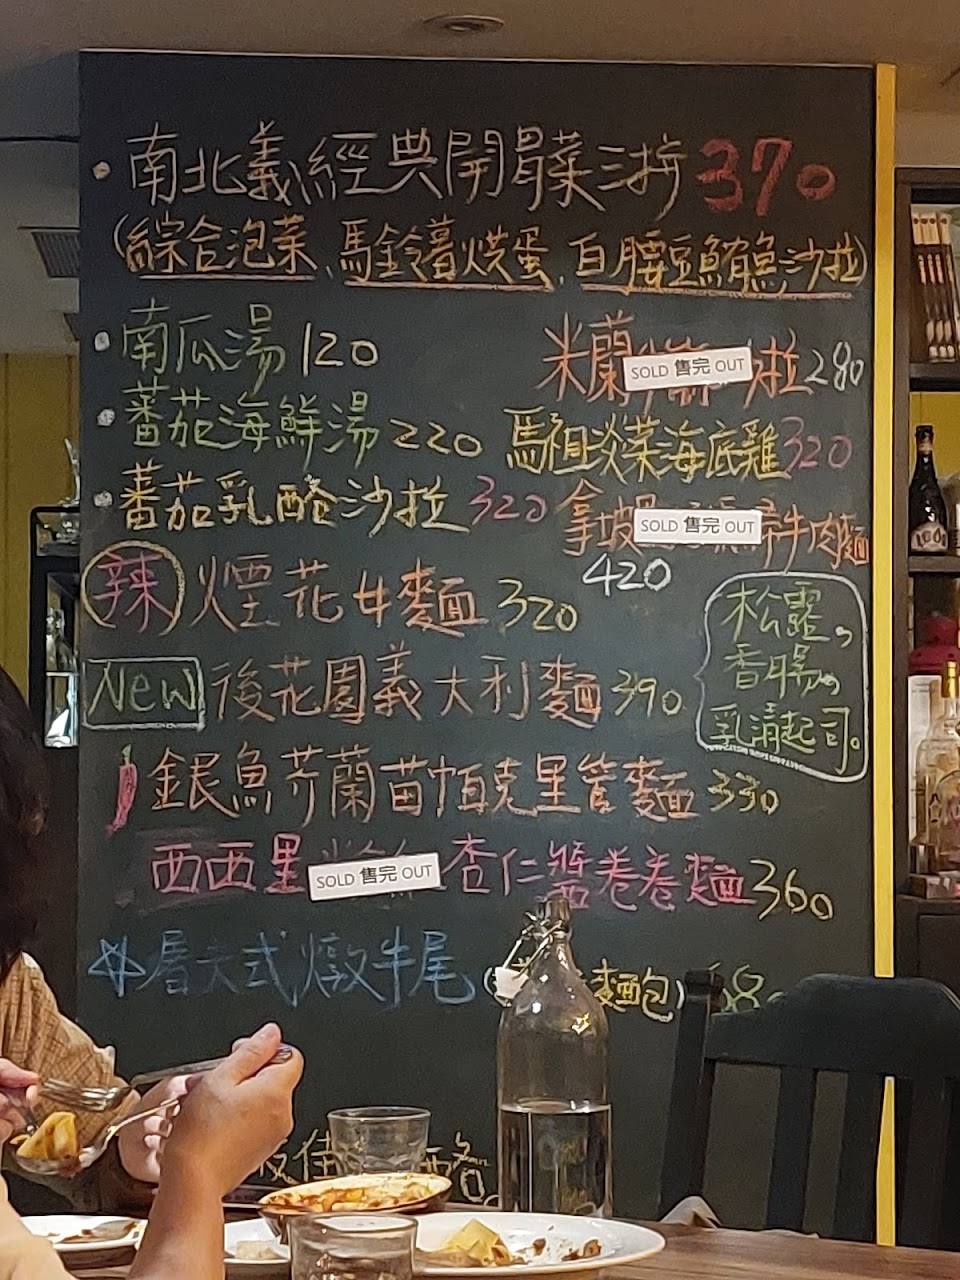 南北義經典開胃菜三拚 370
(綜合泡菜、馬鈴薯烘蛋、白腰豆鮪魚沙拉)
南瓜湯 120
米蘭 SOLD 售完 OUT 拉 280
蕃茄海鮮湯 220
馬祖淡菜海底雞 320
蕃茄乳酪沙拉 320
拿坡 SOLD 售完 OUT 牛肉麵
420
辣 煙花女麵 320
松露、
香腸、
乳清起司。
New 後花園義大利麵 390
銀魚芥蘭苗帕克里管麵 330
西西里 SOLD 售完 OUT 杏仁醬卷卷麵 360
屠夫式燉牛尾 麵包)